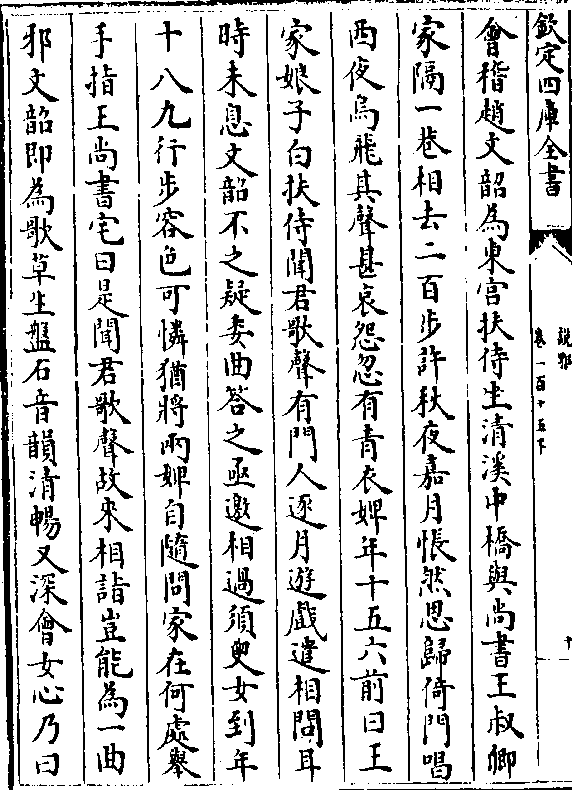 欽定四庫全書
說郛
卷一百十五下
十
會稽趙文韶為東宮扶侍坐清溪中橋與尚書王叔卿
家隔一巷相去二百步許秋夜嘉月悵然思歸倚門唱
西夜烏飛其聲甚哀怨忽有青衣婢年十五六前曰王
家娘子白扶侍聞君歌聲有門人逐月遊戲遣相問耳
時未息文韶不之疑委曲答之亟邀相過須臾女到年
十八九行步容色可憐猶將兩婢自隨問家在何處舉
手指王尚書宅曰是聞君歌聲故來相詣豈能為一曲
邪文韶即為歌草生盤石音韻清暢又深會女心乃曰